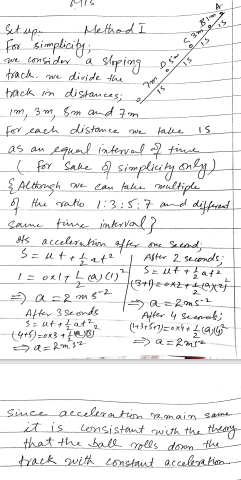 Set up.. Method I
For simplicity;
we consider a sloping
track. we divide the
track in distances;
1m, 3m, 5m and 7m
For each distance we take 1S
as an equal interval of time
( for sake of simplicity only)
{ Although we can take multiple
of the ratio 1:3:5:7 and different
same time interval}
Its acceleration after one second;
S = ut + 1/2 at²
1 = 0x1 + 1/2 (a)(1)²
=> a = 2 m s⁻²
After 2 seconds;
S = ut + 1/2 at²
(3+1) = 0x2 + 1/2 (a)(2)²
=> a = 2 m s⁻²
After 3 seconds
S = ut + 1/2 at²
(4+5) = 0x3 + 1/2 (a)(3)²
=> a = 2 m s⁻²
After 4 seconds;
(1+3+5+7) = 0x4 + 1/2 (a)(4)²
=> a = 2 m s⁻²
A
1m
1S
3m
1S
D 5m
1S
7m
1S
Since acceleration remain same
it is consistant with the theory
that the ball rolls down the
track with constant acceleration.